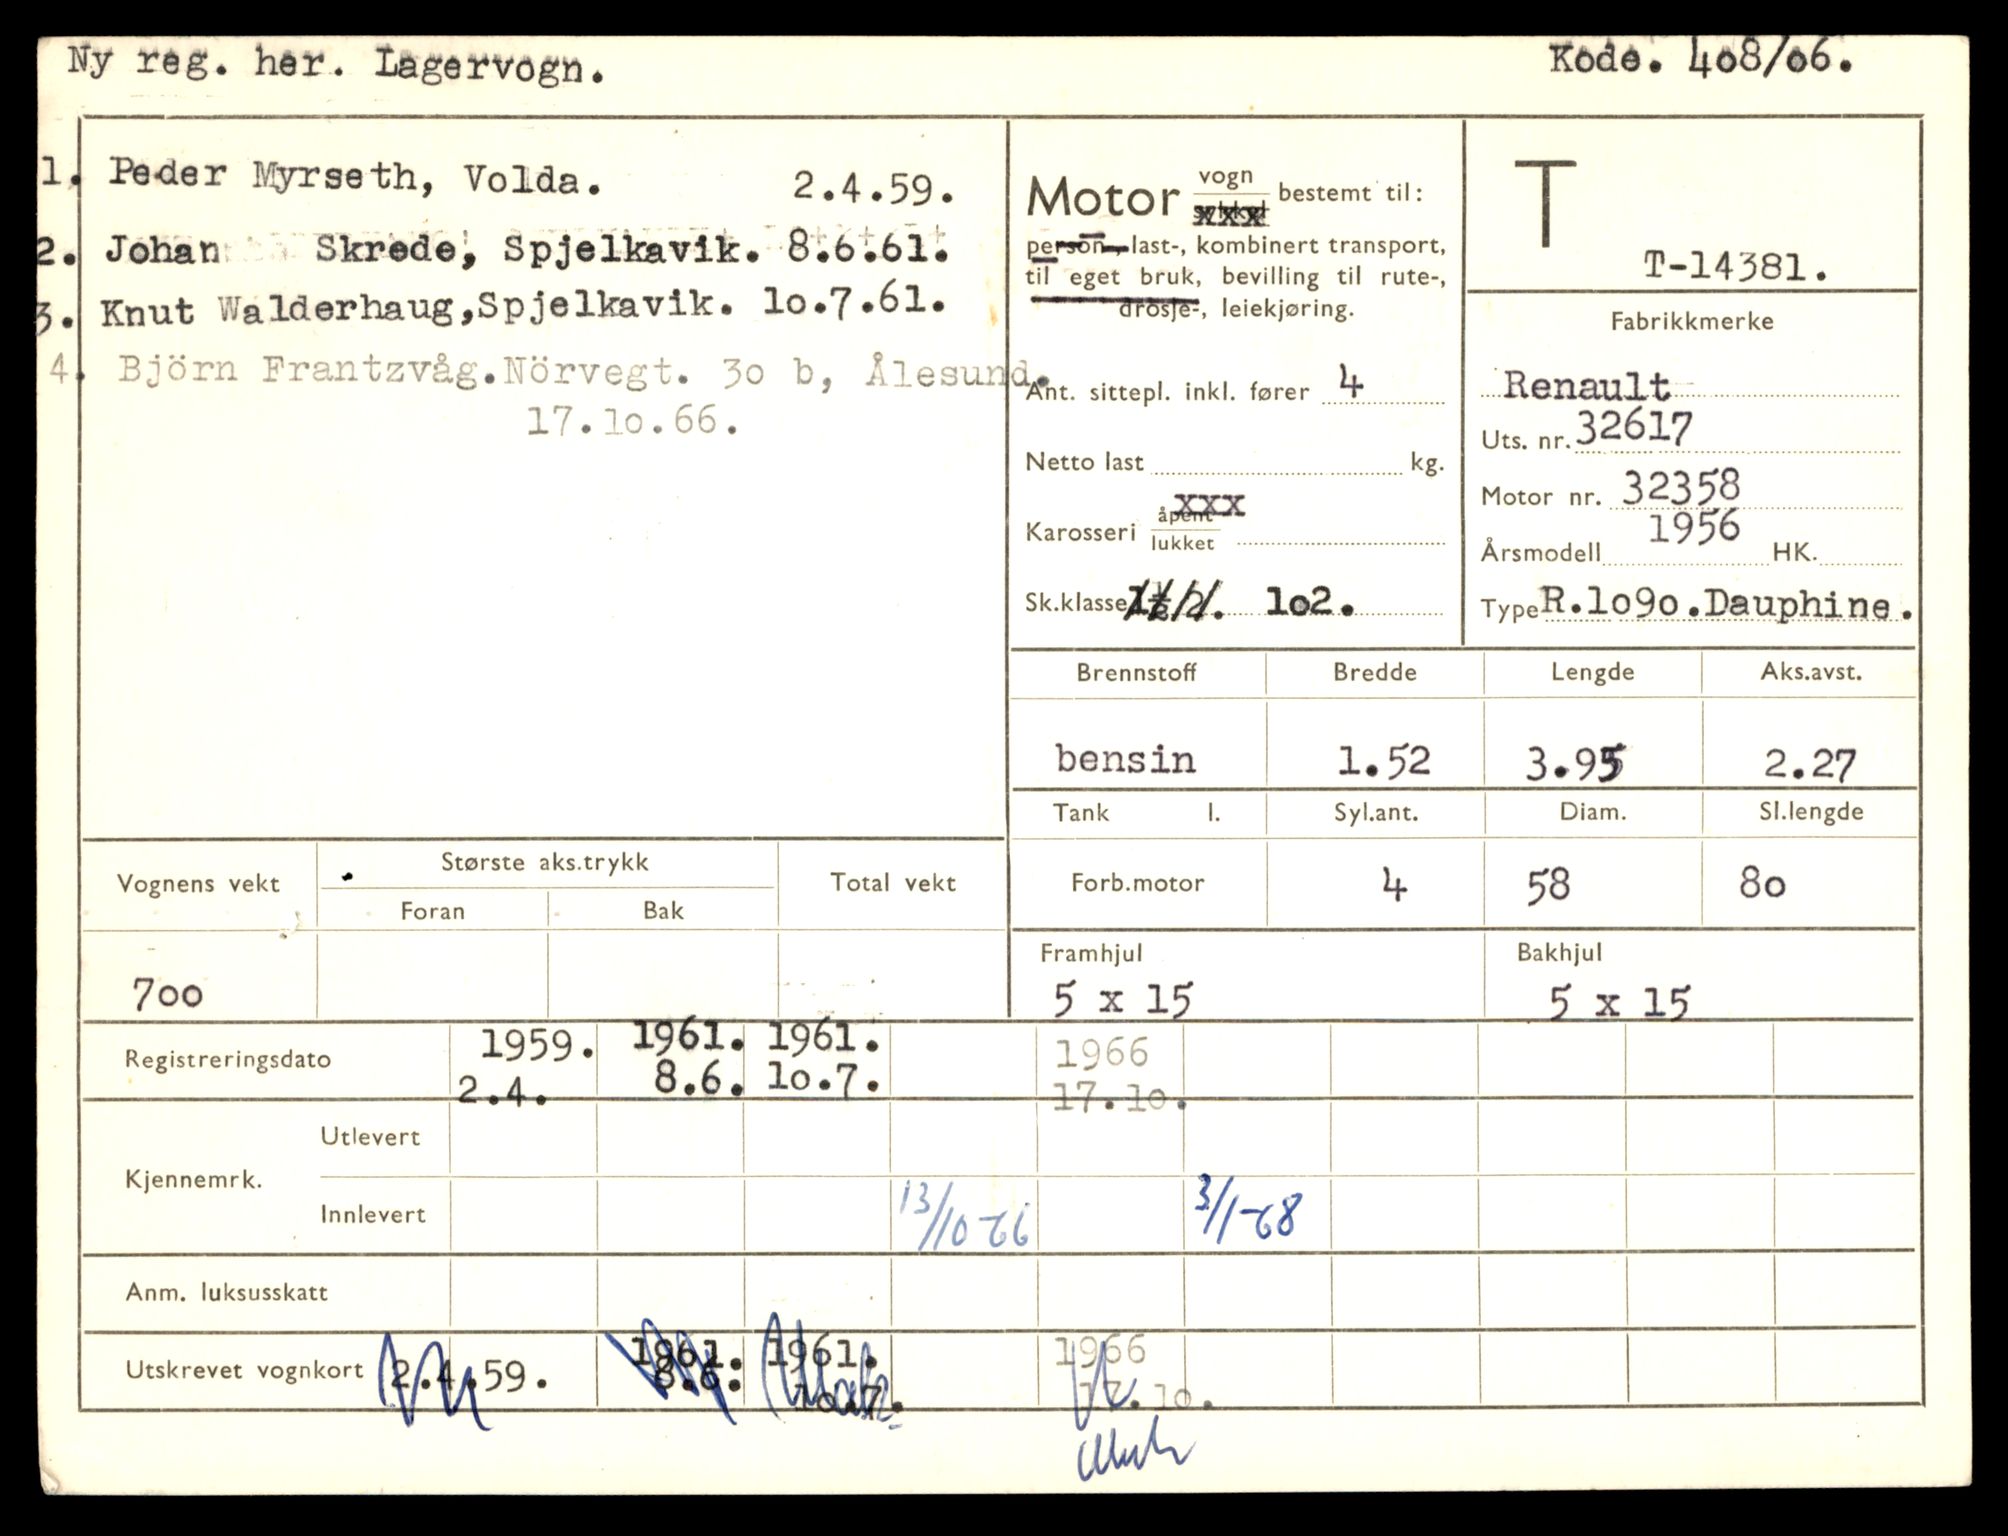 Ny reg. her. Lagervogn.
Kode. 4o8/o6.
1. Peder Myrseth, Volda. 2.4.59.
2. Johan Skrede, Spjelkavik. 8.6.61.
3. Knut Walderhaug,Spjelkavik. 1o.7.61.
4. Björn Frantzvåg.Nörvegt. 3o b, Ålesund.
17.1o.66.
Motor vogn bestemt til:
person-, last-, kombinert transport,
til eget bruk, bevilling til rute-,
drosje-, leiekjøring.
Ant. sittepl. inkl. fører 4
Netto last kg.
xxx
Karosseri åpent
lukket
Sk.klasse 1o2.
T
T-14381.
Fabrikkmerke
Renault
Uts. nr. 32617
Motor nr. 32358
Årsmodell 1956 HK.
Type R.1o9o.Dauphine.
Brennstoff Bredde Lengde Aks.avst.
bensin 1.52 3.95 2.27
Tank l. Syl.ant. Diam. Sl.lengde
Forb.motor 4 58 8o
Framhjul Bakhjul
5 x 15 5 x 15
Vognens vekt Største aks.trykk Total vekt
Foran Bak
7oo
Registreringsdato 1959. 1961. 1961. 1966
2.4. 8.6. 1o.7. 17.1o.
Kjennemrk. Utlevert
Innlevert 13/10-66 3/1-68
Anm. luksusskatt
Utskrevet vognkort 2.4.59. 1961. 1961. 1966
8.6. 1o.7. 17.1o.